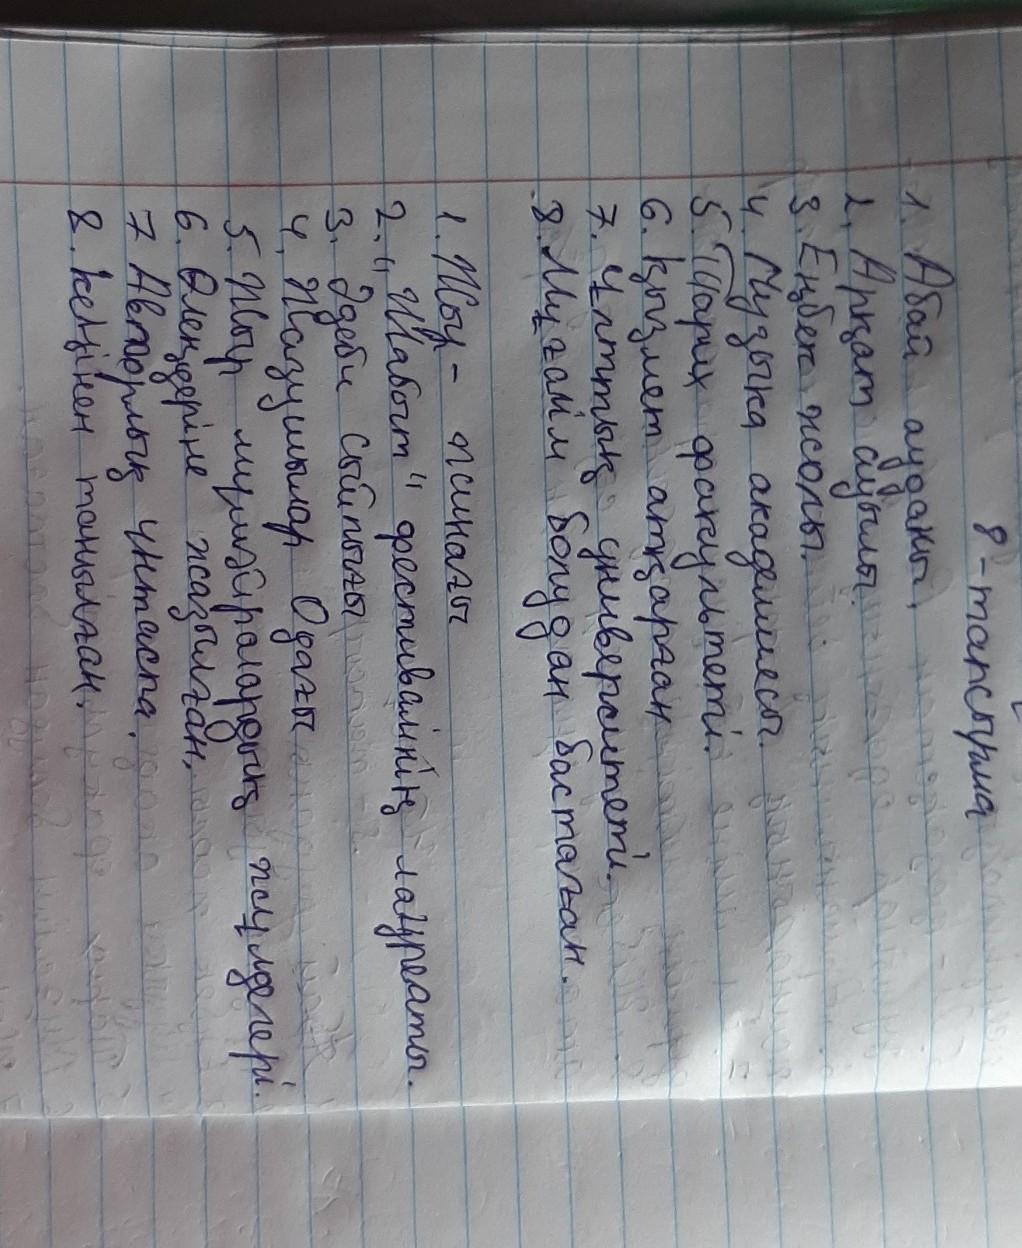 8-тапсырма
1. Абай ауданы.
2. Арқат ауылы.
3. Еңбек жолы.
4. Музыка академиясы.
5. Тарих факультеті.
6. Қызмет атқарған
7. Ұлттық университеті.
8. Мұғалім болудан бастаған.
1. Жыр - жинағы
2. "Шабыт" фестивалінің лауреаты.
3. Әдеби сыйлығы
4. Жазушылар Одағы
5. Жыр мүшәйралардың жүлдегері.
6. Өлеңдеріне жазылған.
7 Авторлық үнтаспа.
8. Кеңінен танылған.